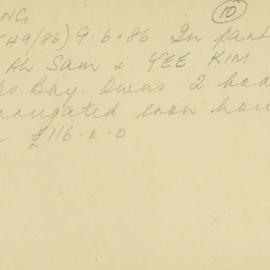 NG
10
49/86) 9.6.86 In part
Ah Sam & YEE KIM
Bay. Owns 2 boa
rrugated iron hou
£116-0-0